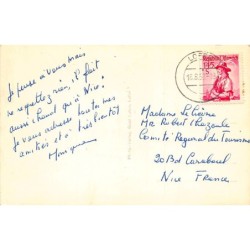 Je pense à vous mais
ne regrettez rien, il fait
aussi chaud qu'à Nice!
Je vous adresse toutes mes
amitiés et à très bientôt
Madame Lelièvre
Mr Robert
Comité Regional du Tourisme
20 Bd Carabacel
Nice France